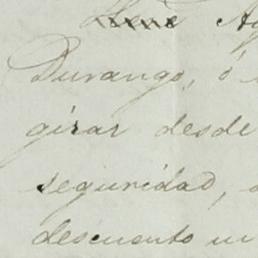 Durango, ó
girar desde
seguridad,
descuento